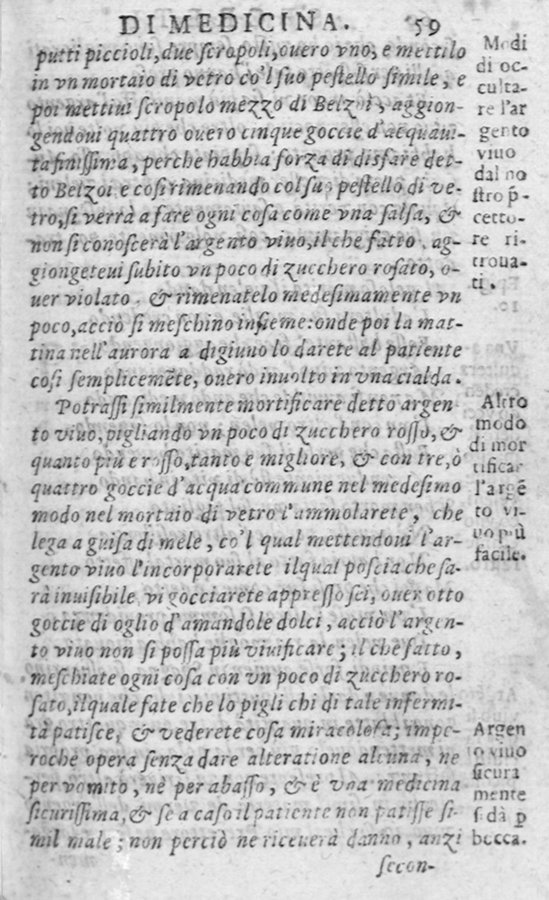 DI MEDICINA. 59
putti piccioli, due scropoli, ouero vno, e mettilo
in vn mortaio di vetro co'l suo pestello simile, e
poi mettiui scropolo mezzo di Belzoi, aggion-
gendoui quattro ouero cinque goccie d'acquaui-
ta finissima, perche habbia forza di disfare det-
to Belzoi e cosi rimenando col suo pestello di ve-
tro, si verrà a fare ogni cosa come vna salsa, &
non si conoscerà l'argento viuo, il che fatto, ag-
giongeteui subito vn poco di zucchero rosato, o-
uer violato & rimenatelo medesimamente vn
poco, acciò si meschino insieme: onde poi la mat-
tina nell'aurora a digiuno lo darete al patiente
cosi semplicemẽte, ouero inuolto in vna cialda.
Potrassi similmente mortificare detto argen
to viuo, pigliando vn poco di zucchero rosso, &
quanto più e rosso, tanto e migliore, & con tre, ò
quattro goccie d'acqua commune nel medesimo
modo nel mortaio di vetro l'ammolarete, che
lega a guisa di mele, co'l qual mettendoui l'ar-
gento viuo l'incorporarete ilqual poscia che sa-
rà inuisibile vi gocciarete appresso sei, ouer otto
goccie di oglio d'amandole dolci, acciò l'argen-
to viuo non si possa più viuificare; il che fatto,
meschiate ogni cosa con vn poco di zucchero ro-
sato, ilquale fate che lo pigli chi di tale infermi-
tà patisce, & vederete cosa miracolosa; impe-
roche opera senza dare alteratione alcuna, ne
per vomito, nè per abasso, & è vna medicina
sicurissima, & se a caso il patiente non patisse si-
mil male; non perciò ne riceuerà danno, anzi
secon-
Modi
di oc-
culta-
re l'ar
gento
viuo
dal no
stro p̃-
cetto-
re ri-
troua-
ti.
Altro
modo
di mor
tificar
l'argẽ
to vi-
uo più
facile.
Argen
to viuo
sicura
mente
si dà ꝑ
bocca.